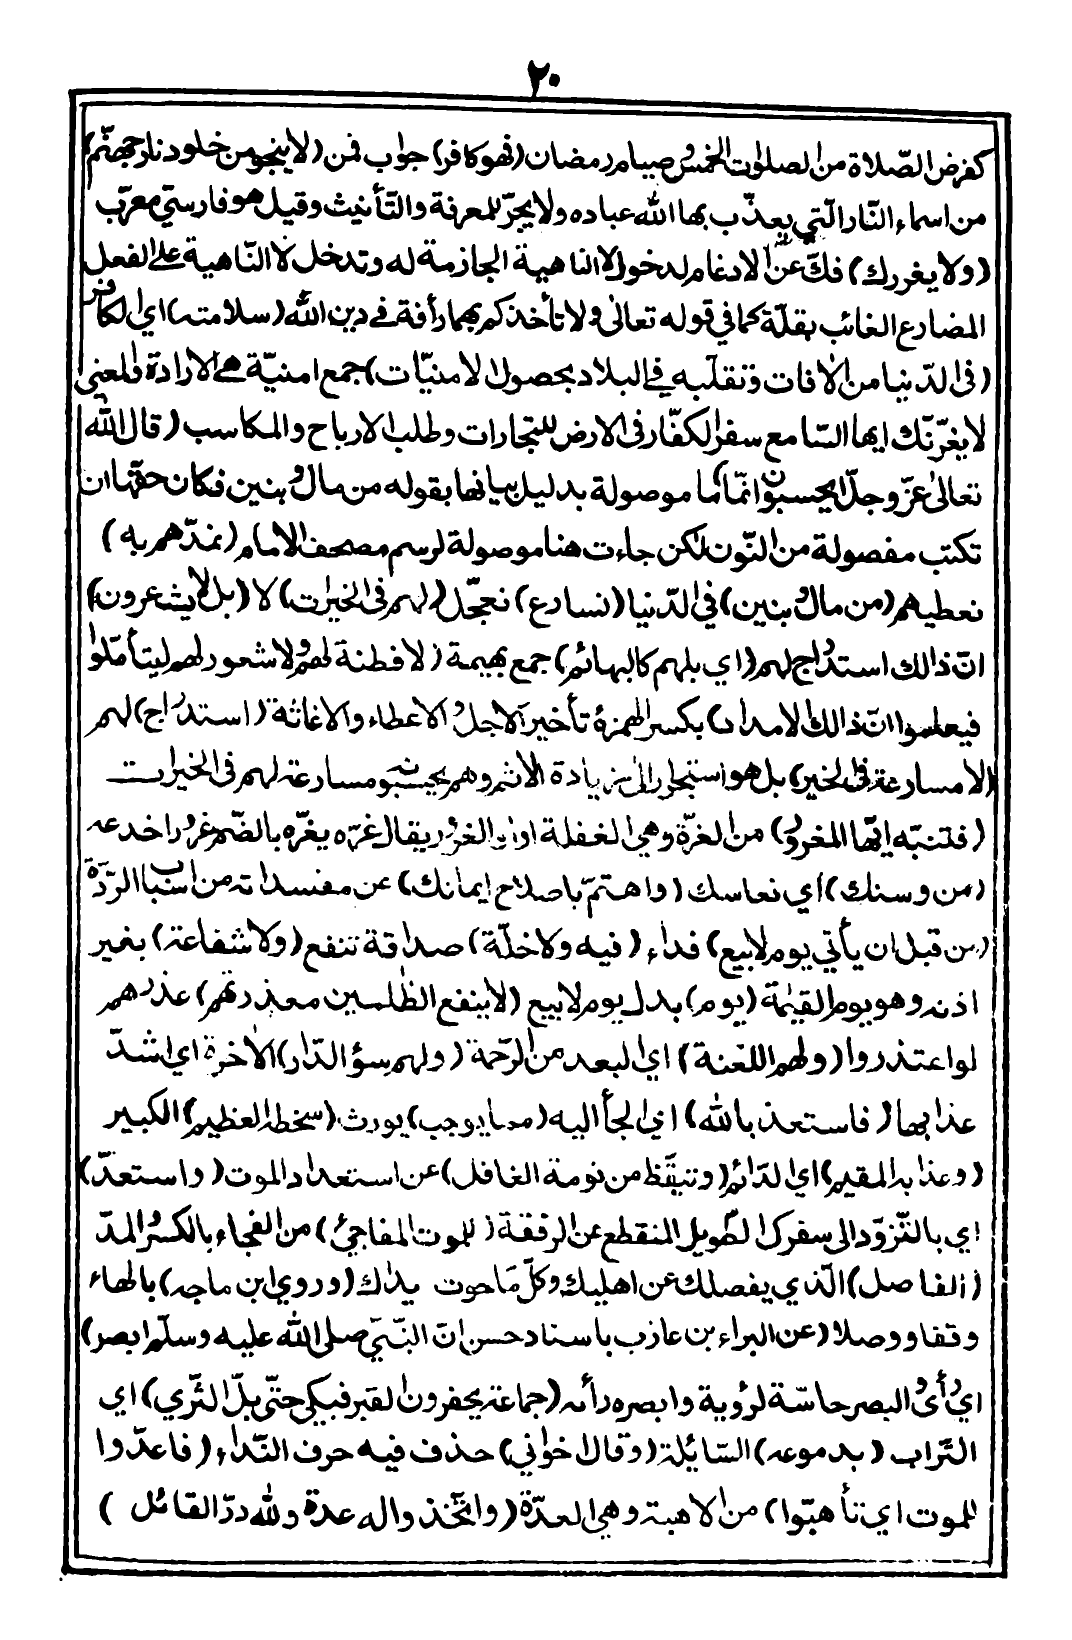 ٢٠
كفرض الصّلاة من الصلوات الخمس وصيام رمضان (فهو كافر) جواب فمن (لا ينجو من خلود نار جهنّم)
من اسماء النّار الّتي يعذّب بها الله عباده ولا يجرّ للمعرفة والتّأنيث وقيل هو فارسيّ معرّب
(ولا يغررك) فكّ عن الادغام لدخول لا الناهية الجازمة له وتدخل لا النّاهية على الفعل
المضارع الغائب بقلّة كما في قوله تعالى ولا تأخذكم بهما رأفة في دين الله (سلامته) اي الكافر
(في الدّنيا من الآفات وتقلّبه في البلاد بحصول الامنيّات) جمع امنيّة هي الارادة فالمعنى
لا يغرّنّك ايها السّامع سفر الكفّار في الارض للتجارات وطلب الارباح والمكاسب (قال الله
تعالى عزّ وجلّ ايحسبون انّما) ما موصولة بدليل بيانها بقوله من مال وبنين فكان حقّها ان
تكتب مفصولة من النّون لكن جاءت هنا موصولة لرسم مصحف الامام (نمدّهم به)
نعطيهم (من مال وبنين) في الدّنيا (نسارع) نعجّل (لهم في الخيرات) لا (بل لا يشعرون)
انّ ذالك استدراج لهم (اي بلهم كالبهائم) جمع بهيمة (لا فطنة لهم ولا شعور لهم ليتأمّلوا
فيعلموا انّ ذالك الامداد) بكسر الهمزة تأخير الاجل والاعطاء والاغاثة (استدراج) لهم
(لا مسارعة في الخير) بل هو استجرار الى زيادة الاثم وهم يحسبونه مسارعة لهم في الخيرات
(فلتنبّه ايّها المغرور) من الغرّة وهي الغفلة او من الغرور يقال غرّه يغرّه بالضّم غرورا خدعه
(من وسنك) أي نعاسك (واهتمّ باصلاح ايمانك) عن مفسداته من اسباب الرّدّة
(من قبل ان يأتي يوم لا بيع) فداء (فيه ولا خلّة) صداقة تنفع (ولا شفاعة) بغير
اذنه وهو يوم القيٰمة (يوم) بدل يوم لا بيع (لا ينفع الظّلمين معذرتهم) عذرهم
لو اعتذروا (ولهم اللّعنة) اي البعد من الرّحمة (ولهم سؤ الدّار) الآخرة اي اشدّ
عذابها (فاستعذ بالله) اي الجأ اليه (مما يوجب) يورث (سخطه العظيم) الكبير
(وعذابه المقيم) اي الدّائم (وتيقّظ من نومة الغافل) عن استعداد الموت (واستعدّ)
اي بالتّزوّد الى سفرك الطّويل المنقطع عن الرفقة (للموت المفاجئ) من الفجاء بالكسر والمدّ
(الفاصل) الّذي يفصلك عن اهليك وكلّ ما حوت يداك (وروي ابن ماجه) بالهاء
وقفا ووصلا (عن البراء بن عازب باسناد حسن انّ النّبيّ صلى الله عليه وسلّم ابصر)
اي رأى والبصر حاسّة لرؤية وابصره رآه (جماعة يحفرون القبر فبكى حتّى بلّ الثّرى) اي
التّراب (بدموعه) السّائلة (وقال اخواني) حذف فيه حرف النّداء (فاعدّوا
للموت اي تأهبّوا) من الاهبة وهي العدّة (واتّخذوا له عدة ولله درّ القائل)